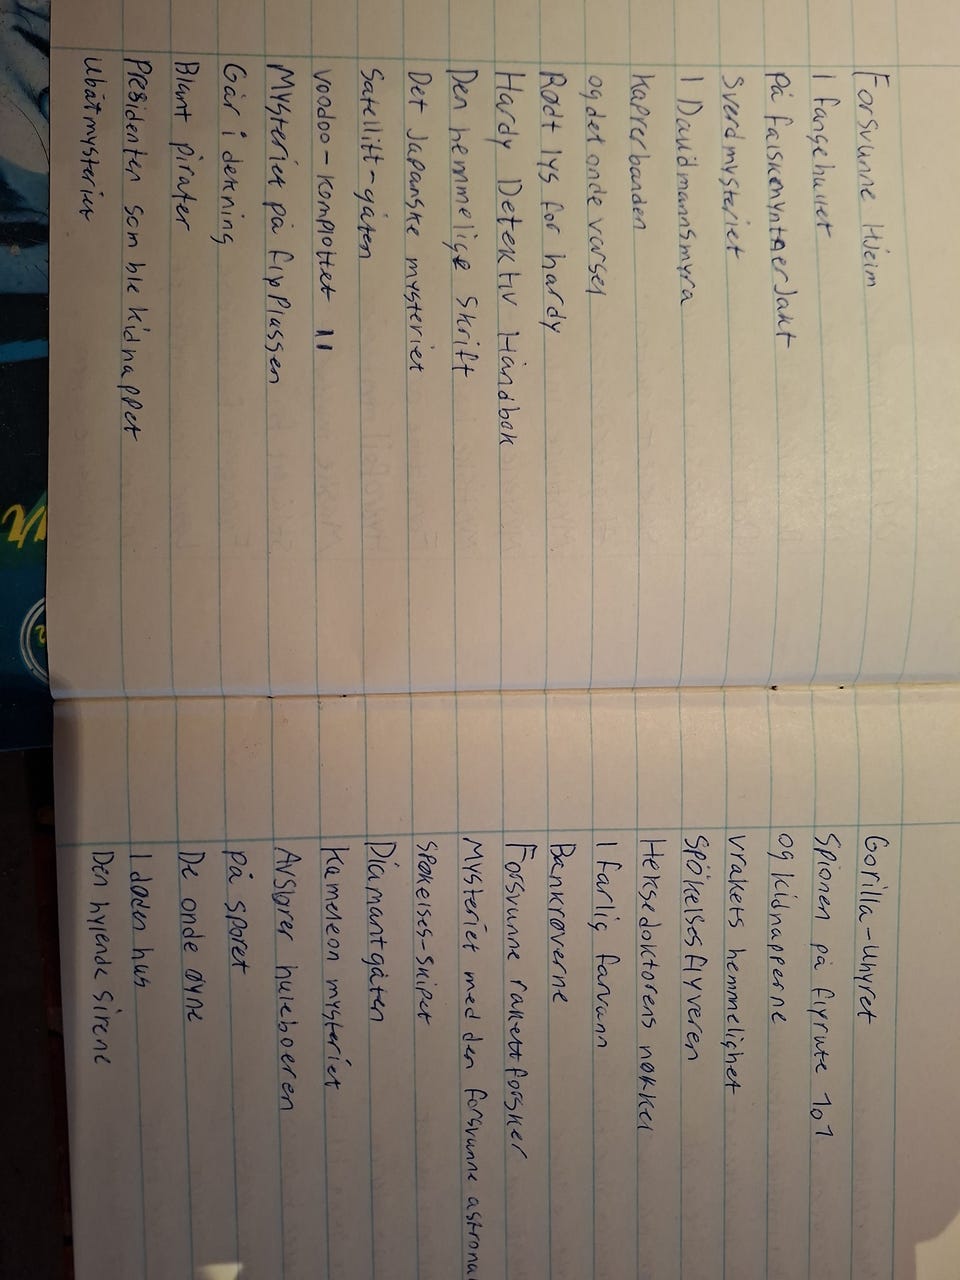 Forsvunne Hjeim
I fangehullet
På falskmyntnerJakt
Sverdmysteriet
I Daudmannsmyra
kaprerbanden
og det onde varsel
Rødt lys for hardy
Hardy Detektiv Håndbok
Den hemmelige Skrift
Det Japanske mysteriet
Satellitt-gåten
Voodoo-komplottet 11
Mysteriet på flyPlassen
Går i dekning
Blant pirater
Presidenten som ble kidnappet
ubåtmysteriet
Gorilla-Uhyret
Spionen på flyrute 101
og kidnapperne
vrakets hemmelighet
Spökelsesflyveren
Heksedoktorens nøkkel
I farlig farvann
Bankrøverne
Forsvunne rakettforsker
Mysteriet med den forsvunne astrona
Spøkelses-skipet
Diamantgåten
Kameleon mysteriet
Avslører huleboeren
på sporet
De onde øyne
I døden hus
Den hylende sirene